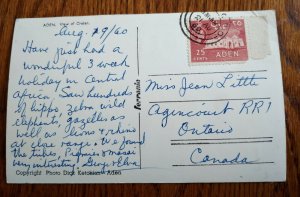 ADEN, View of Crater.
Aug. 29/60
Have just had a
wonderful 3 week
holiday in Central
Africa. Saw hundreds
of hippo, zebra, wild
elephants, gazelles as
well as lions & rhino
at close range. We found
the tribes, Pygmies & masai
very interesting. George & Elva
Copyright Photo Dick Ketchian - Aden
ADEN
25
CENTS
Miss Jean Little
Agincourt RR1
Ontario
Canada